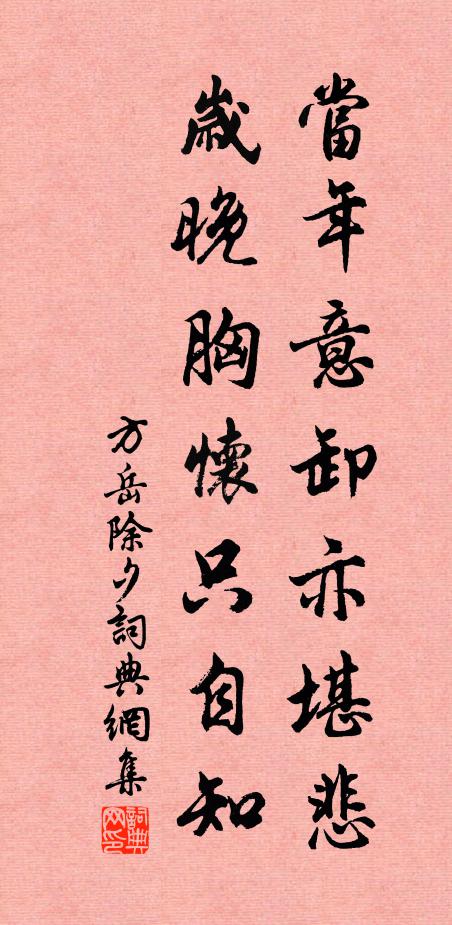 當年意卸亦堪悲
歲晚胸懷只自知
方岳除夕詞典網集
詞典网印